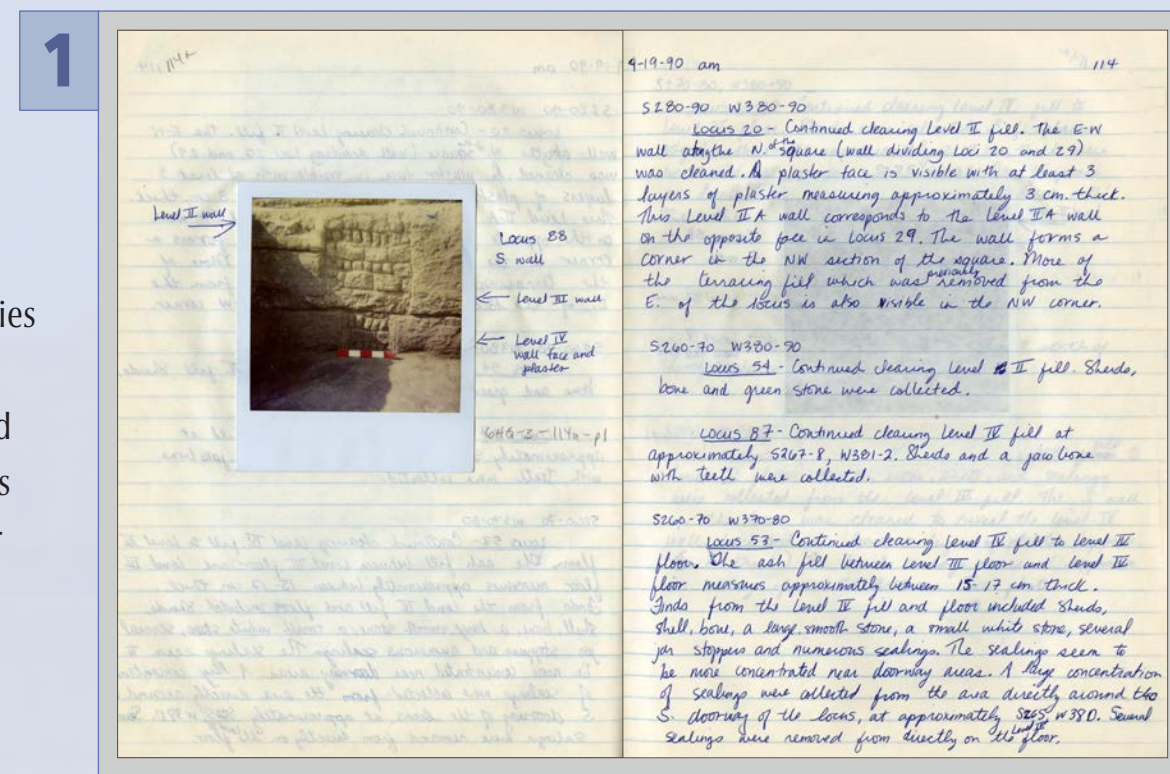 1
ies
d
s
.
114a
Level II wall
Locus 88
S. wall
Level III wall
Level IV
wall face and
plaster
6HQ-3-114a-p1
9-19-90 am
114
S280-90 W380-90
Locus 20 - Continued clearing Level II fill. The E-W
wall along the N. of the square (wall dividing Loci 20 and 29)
was cleaned. A plaster face is visible with at least 3
layers of plaster measuring approximately 3 cm. thick.
This Level IIA wall corresponds to the Level IIA wall
on the opposite face in Locus 29. The wall forms a
corner in the NW section of the square. More of
the terracing fill which was previously removed from the
E. of the locus is also visible in the NW corner.
S260-70 W380-90
Locus 54 - Continued clearing Level II fill. Sherds,
bone and green stone were collected.
Locus 87 - Continued clearing Level IV fill at
approximately S267-8, W381-2. Sherds and a jaw bone
with teeth were collected.
S260-70 W370-80
Locus 53 - Continued clearing Level IV fill to Level IV
floor. The ash fill between Level III floor and Level IV
floor measures approximately between 15-17 cm thick.
Finds from the Level IV fill and floor included sherds,
shell, bone, a large smooth stone, a small white stone, several
jar stoppers and numerous sealings. The sealings seem to
be more concentrated near doorway areas. A large concentration
of sealings were collected from the area directly around the
S. doorway of the locus, at approximately S265, W380. Several
sealings were removed from directly on the Level IV floor.